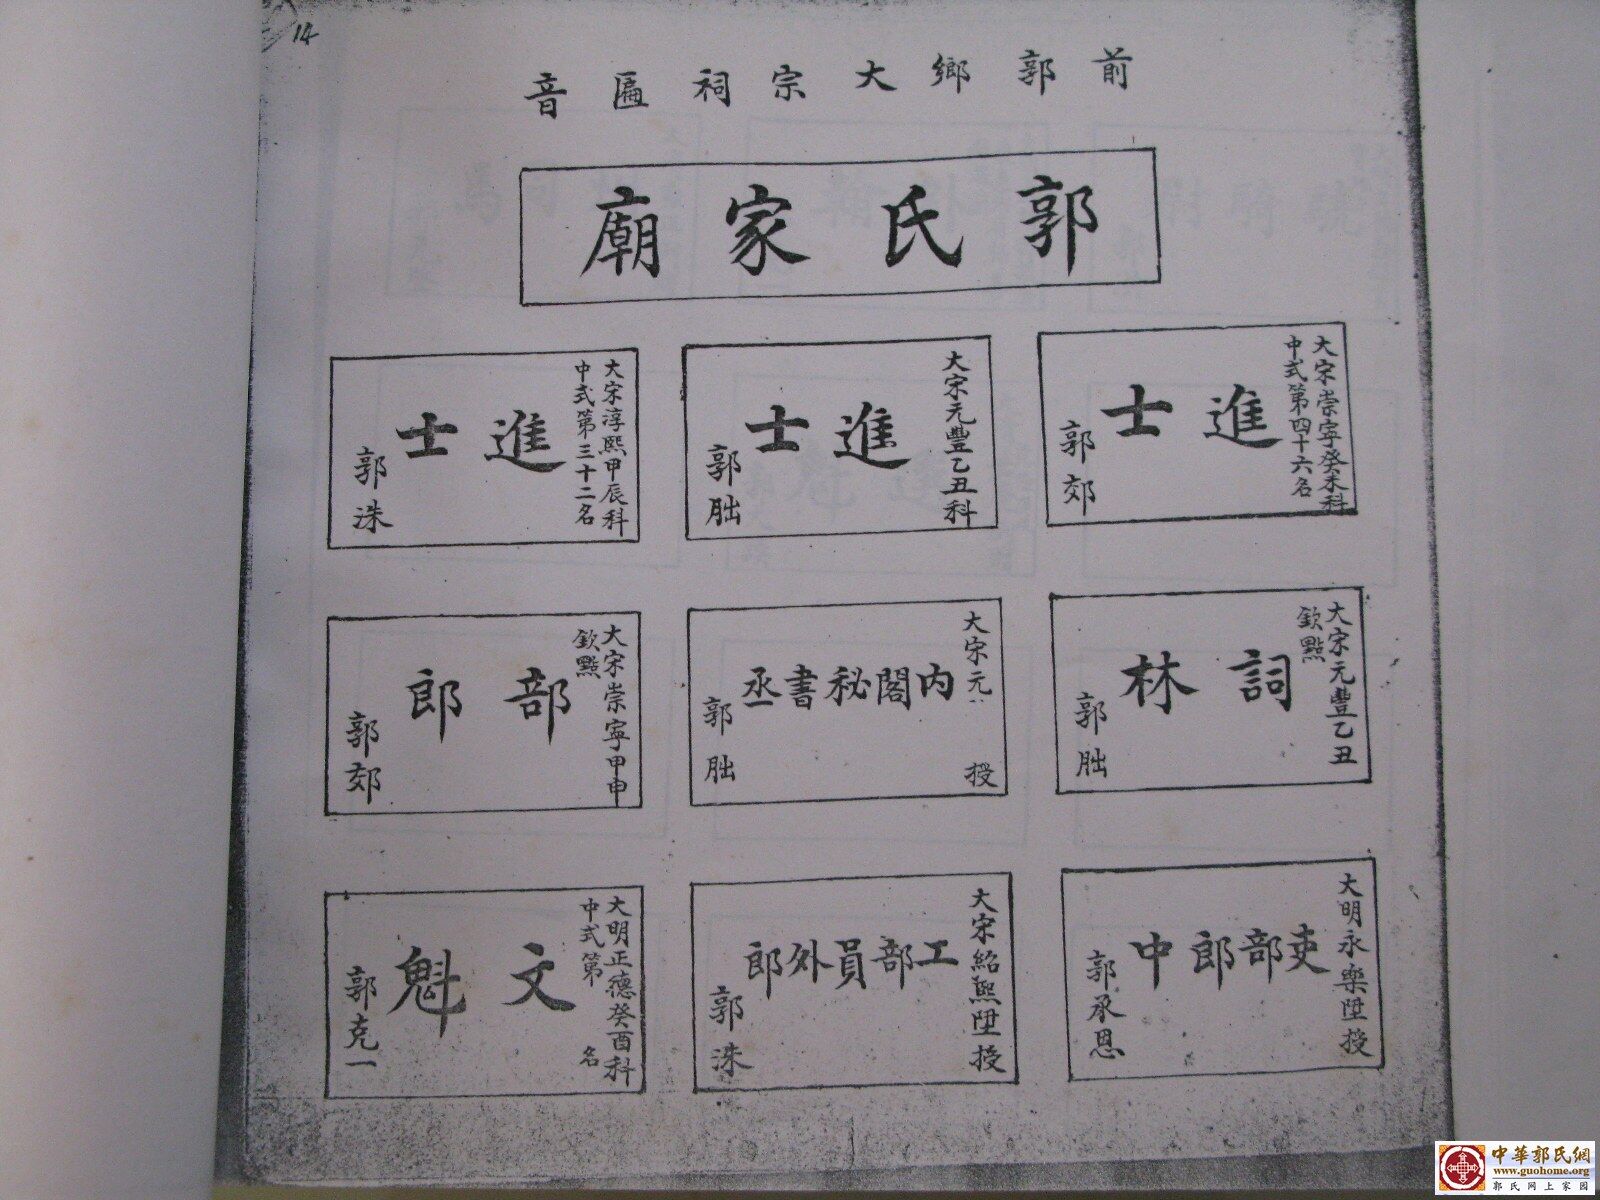 14
前郭鄉大宗祠匾音
郭氏家廟
大宋崇寧癸未科
中式第四十六名
進士
郭郊
大宋元豐乙丑科
進士
郭朏
大宋淳熙甲辰科
中式第三十二名
進士
郭洙
大宋元豐乙丑
欽點
詞林
郭朏
大宋元 授
內閣秘書丞
郭朏
大宋崇寧甲申
欽點
部郎
郭郊
大明永樂陞授
吏部郎中
郭承恩
大宋紹熙陞授
工部員外郎
郭洙
大明正德癸酉科
中式第 名
文魁
郭克一
中華郭氏網
www.guohome.org
郭氏网上家园